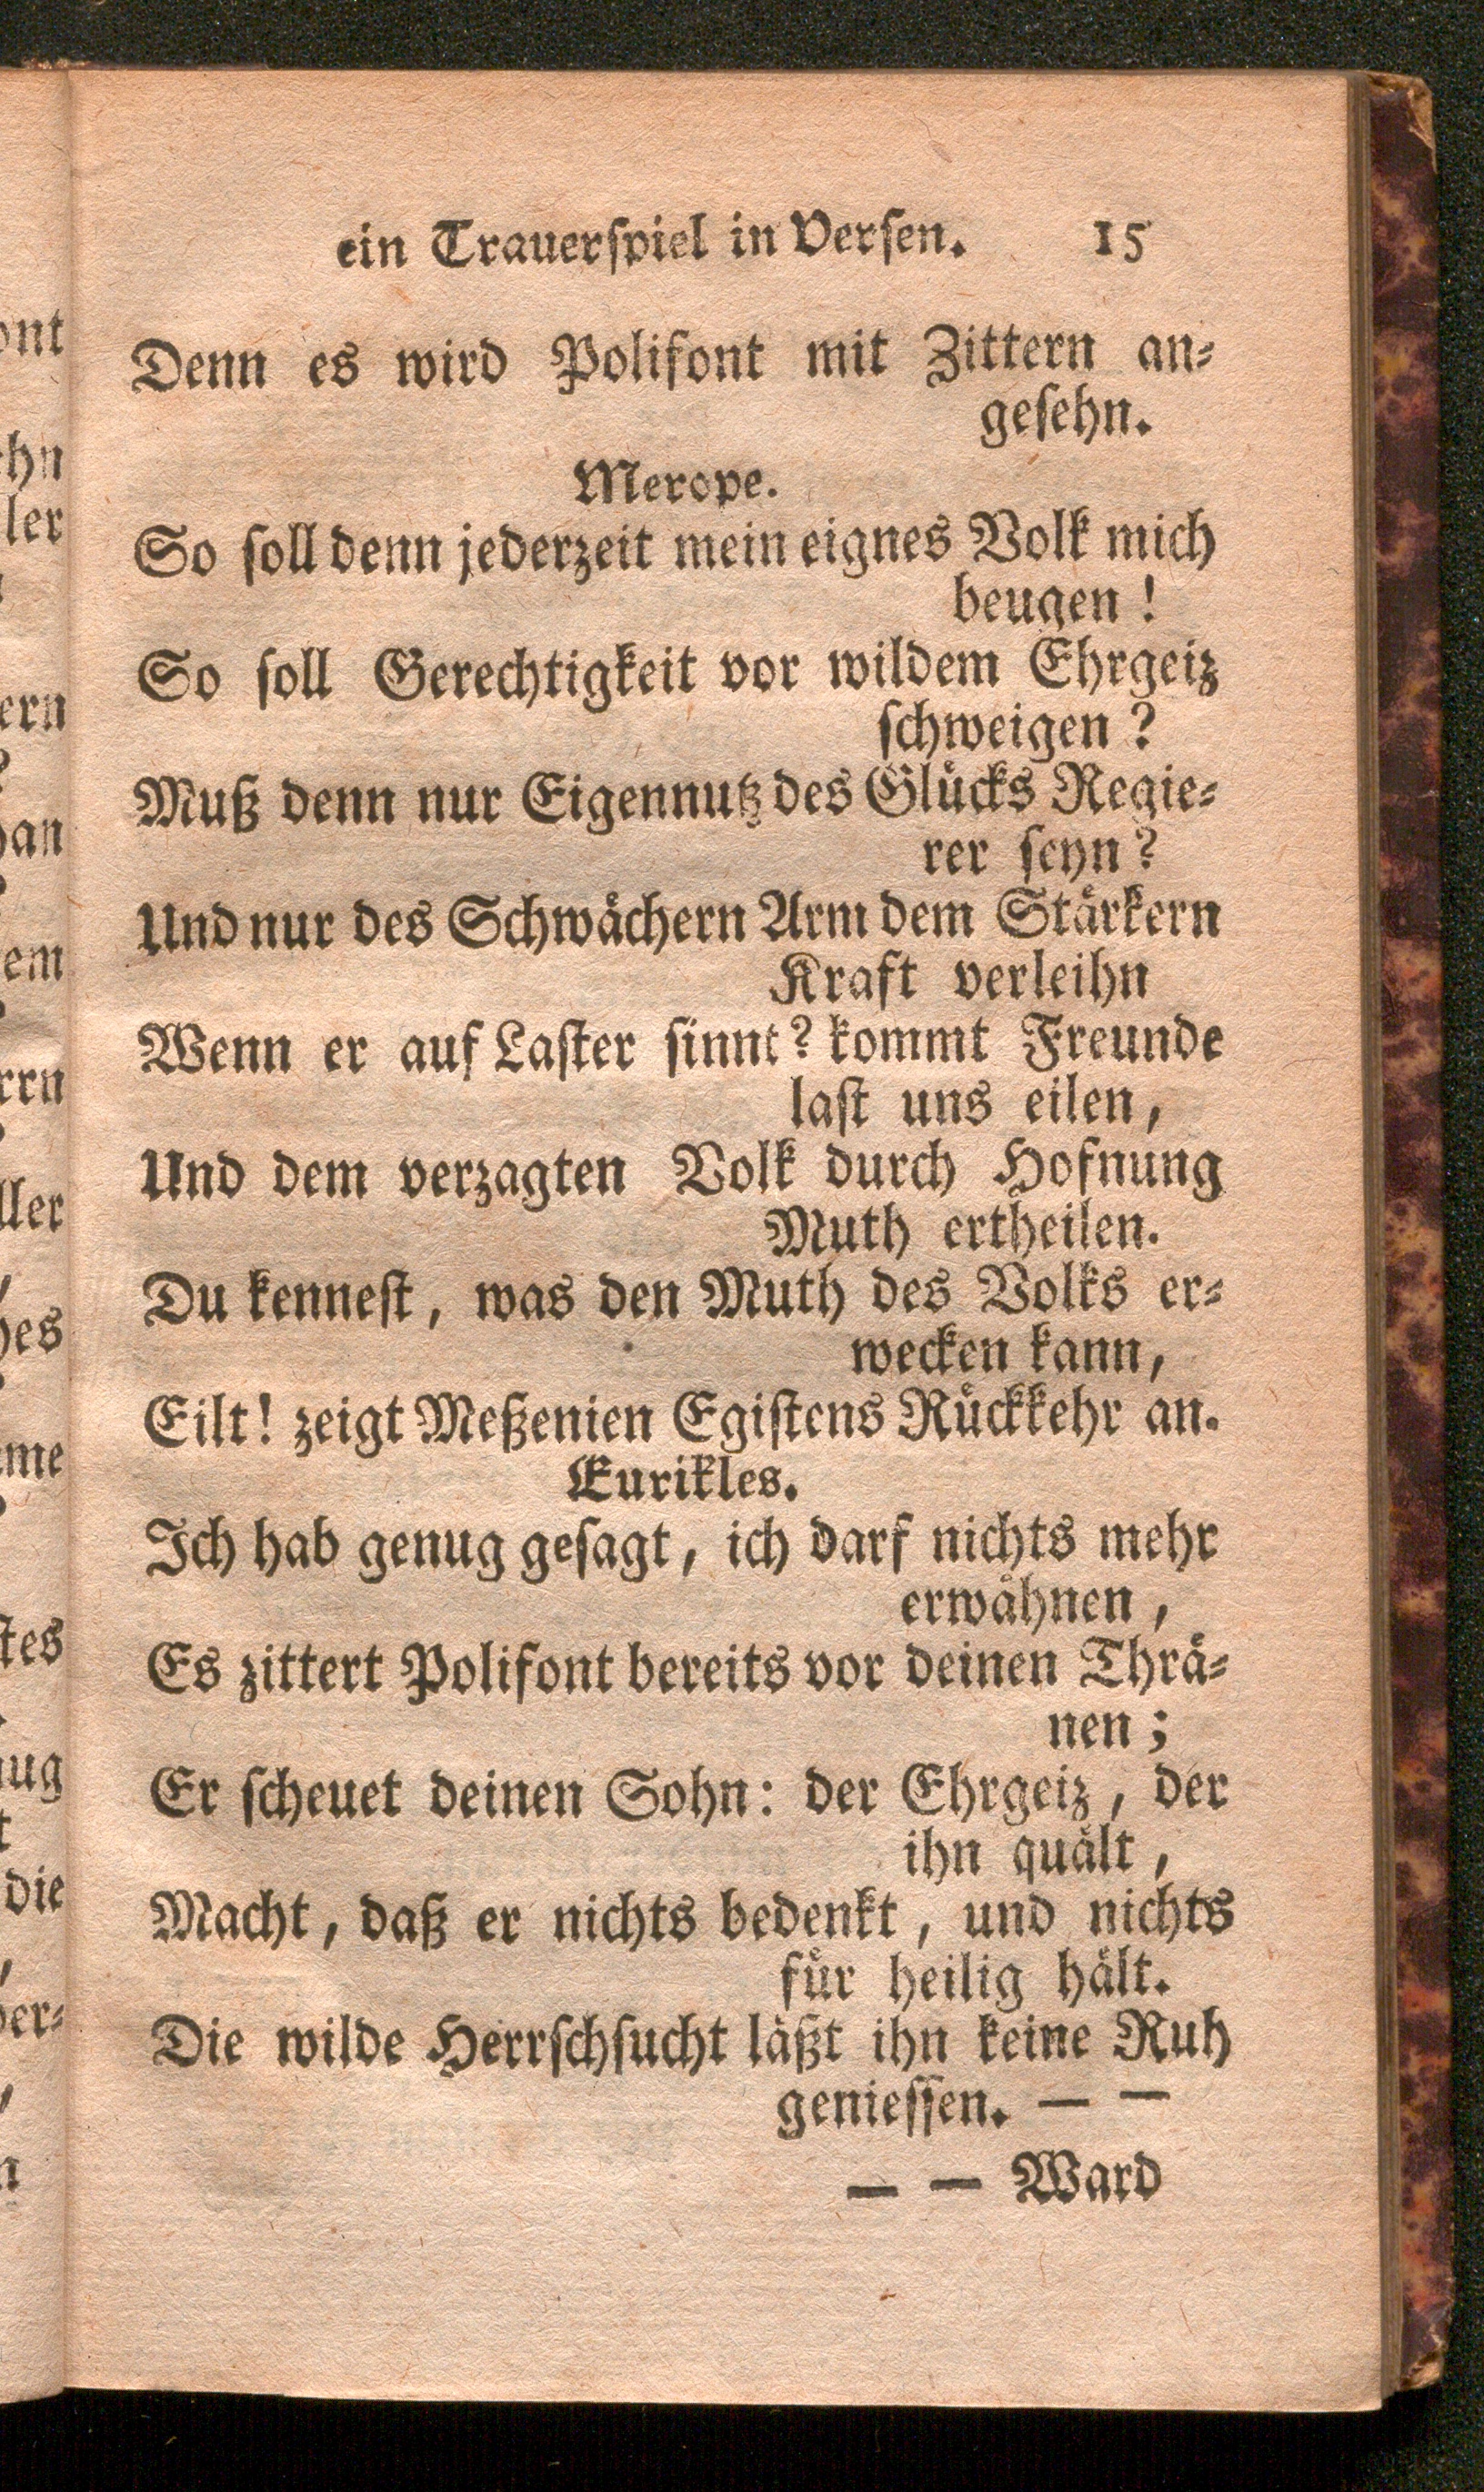 ein Trauerſpiel in Verſen. 15
Denn es wird Polifont mit Zittern an⸗
geſehn.
Merope.
So ſoll denn jederzeit mein eignes Volk mich
beugen!
So ſoll Gerechtigkeit vor wildem Ehrgeiz
ſchweigen?
Muß denn nur Eigennutz des Glücks Regie⸗
rer ſeyn?
Und nur des Schwächern Arm dem Stärkern
Kraft verleihn
Wenn er auf Laſter ſinnt? kommt Freunde
laſt uns eilen,
Und dem verzagten Volk durch Hofnung
Muth ertheilen.
Du kenneſt, was den Muth des Volks er⸗
wecken kann,
Eilt! zeigt Meßenien Egiſtens Rückkehr an.
Eurikles.
Ich hab genug geſagt, ich darf nichts mehr
erwähnen,
Es zittert Polifont bereits vor deinen Thrä⸗
nen;
Er ſcheuet deinen Sohn: der Ehrgeiz, der
ihn quält,
Macht, daß er nichts bedenkt, und nichts
für heilig hält.
Die wilde Herrſchſucht läßt ihn keine Ruh
genieſſen. — —
— — Ward